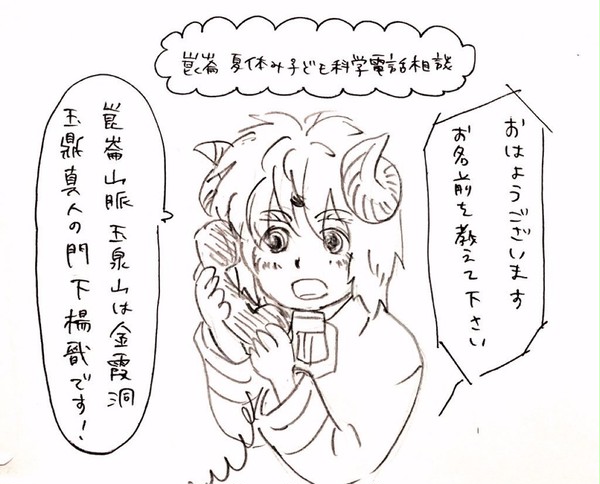 崑崙 夏休み子ども科学電話相談
おはようございます
お名前を教えて下さい
崑崙山脈 玉泉山は金霞洞
玉鼎真人の門下楊戩です!